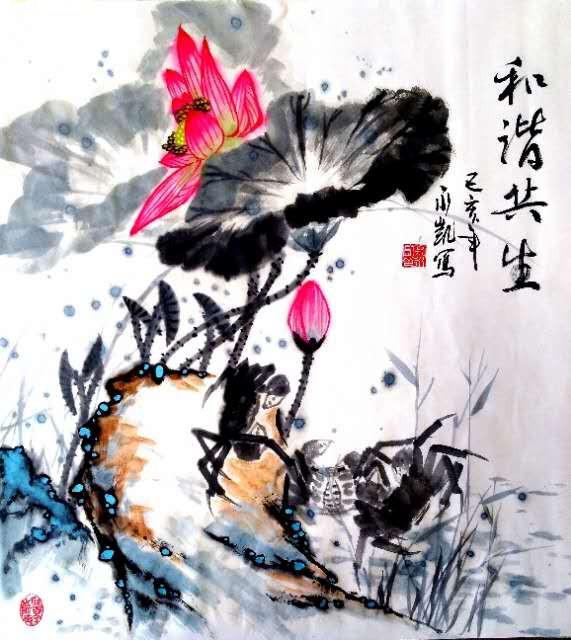 和谐共生
己亥年
永凯写